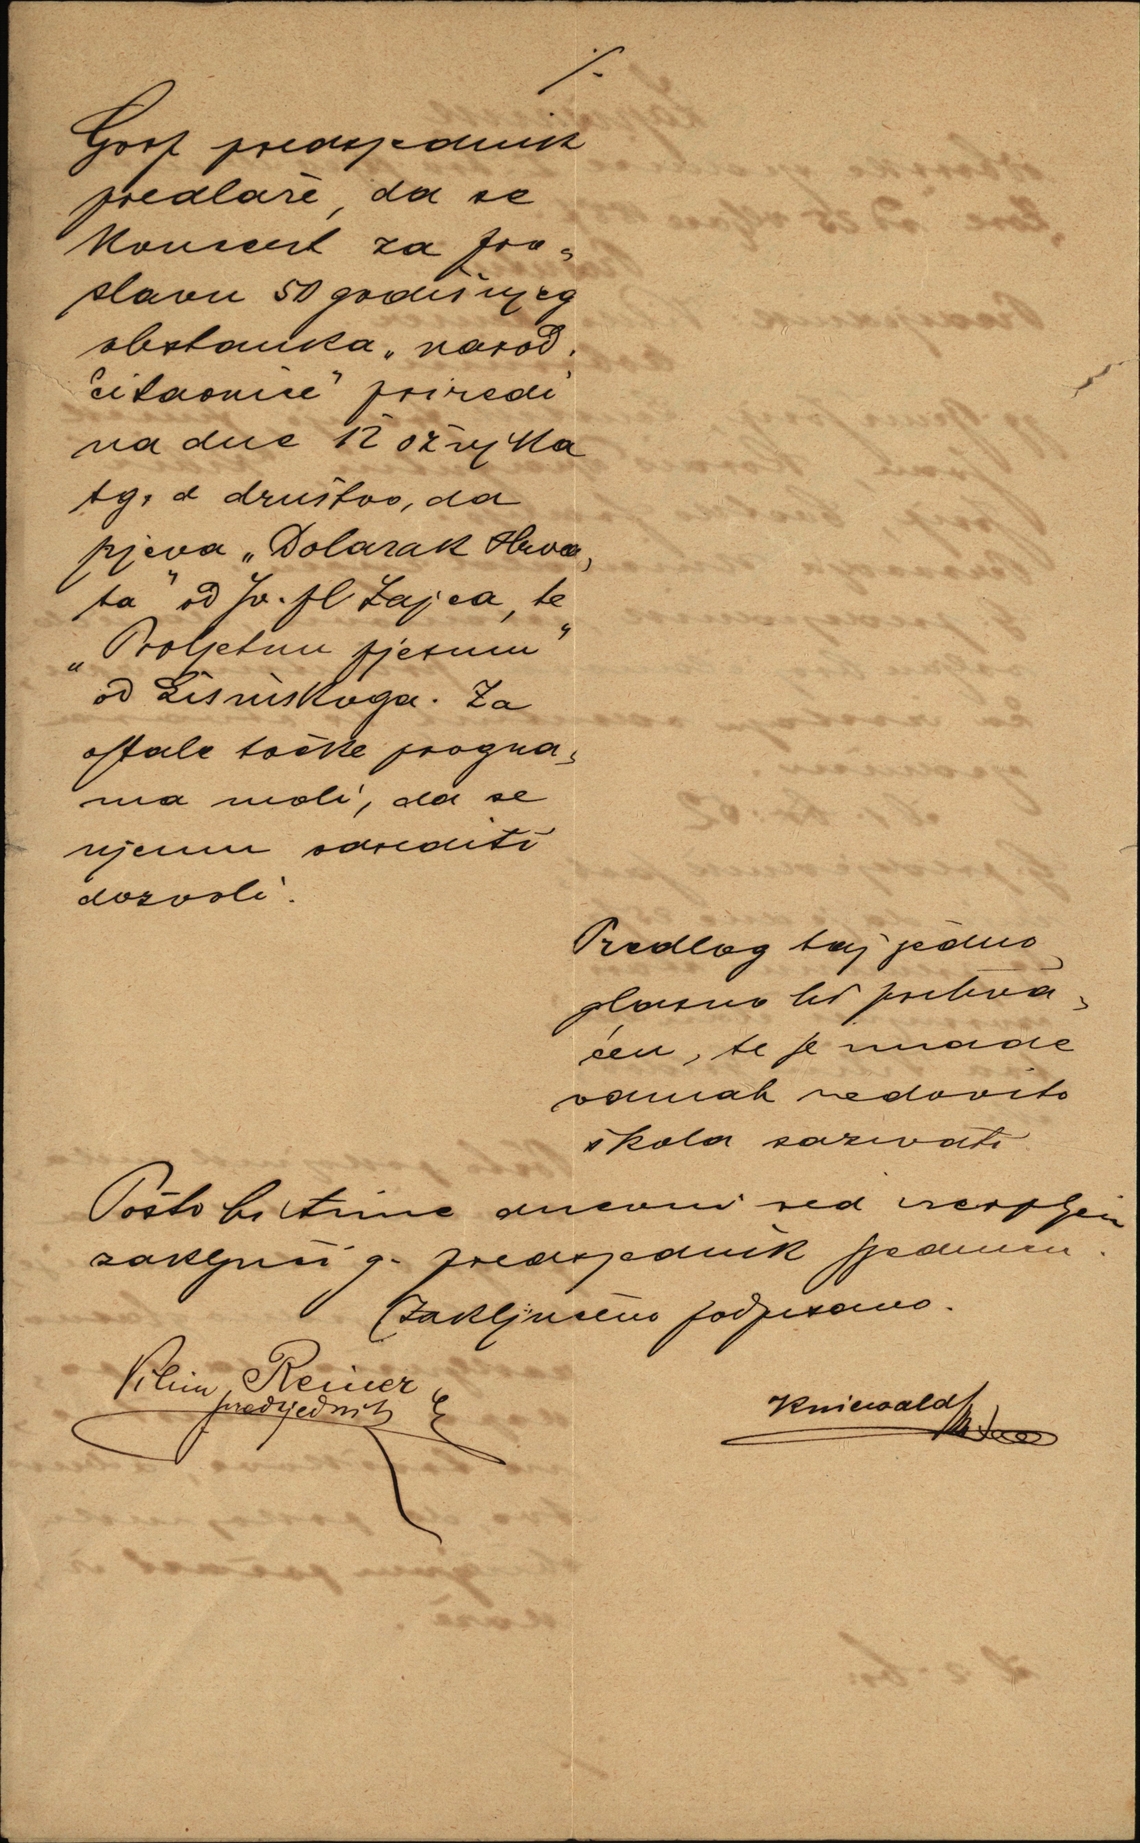 ·/·
Gosp predsjednik
predlaže, da se
koncert za pro-
slavu 50 godišnjeg
obstanka „narod.
čitaonice" priredi
na dne 12 ožujka
tg. a društvo, da
pjeva „Dolazak Hrva-
ta" od Iv. pl Zajca, te
„Proljetnu pjesmu"
od Lisinskoga. Za
ostale točke progra-
ma moli, da se
njemu odrediti
dozvoli.
Predlog taj jedno
glasno bi prihva-
ćen, te se imade
odmah redovito
škola sazivati
Pošto bi time dnevni red iscrpljen
zaključi g. predsjednik sjednicu.
Zaključeno podpisano.
Vilim Reiner
predsjednik
Kniewald